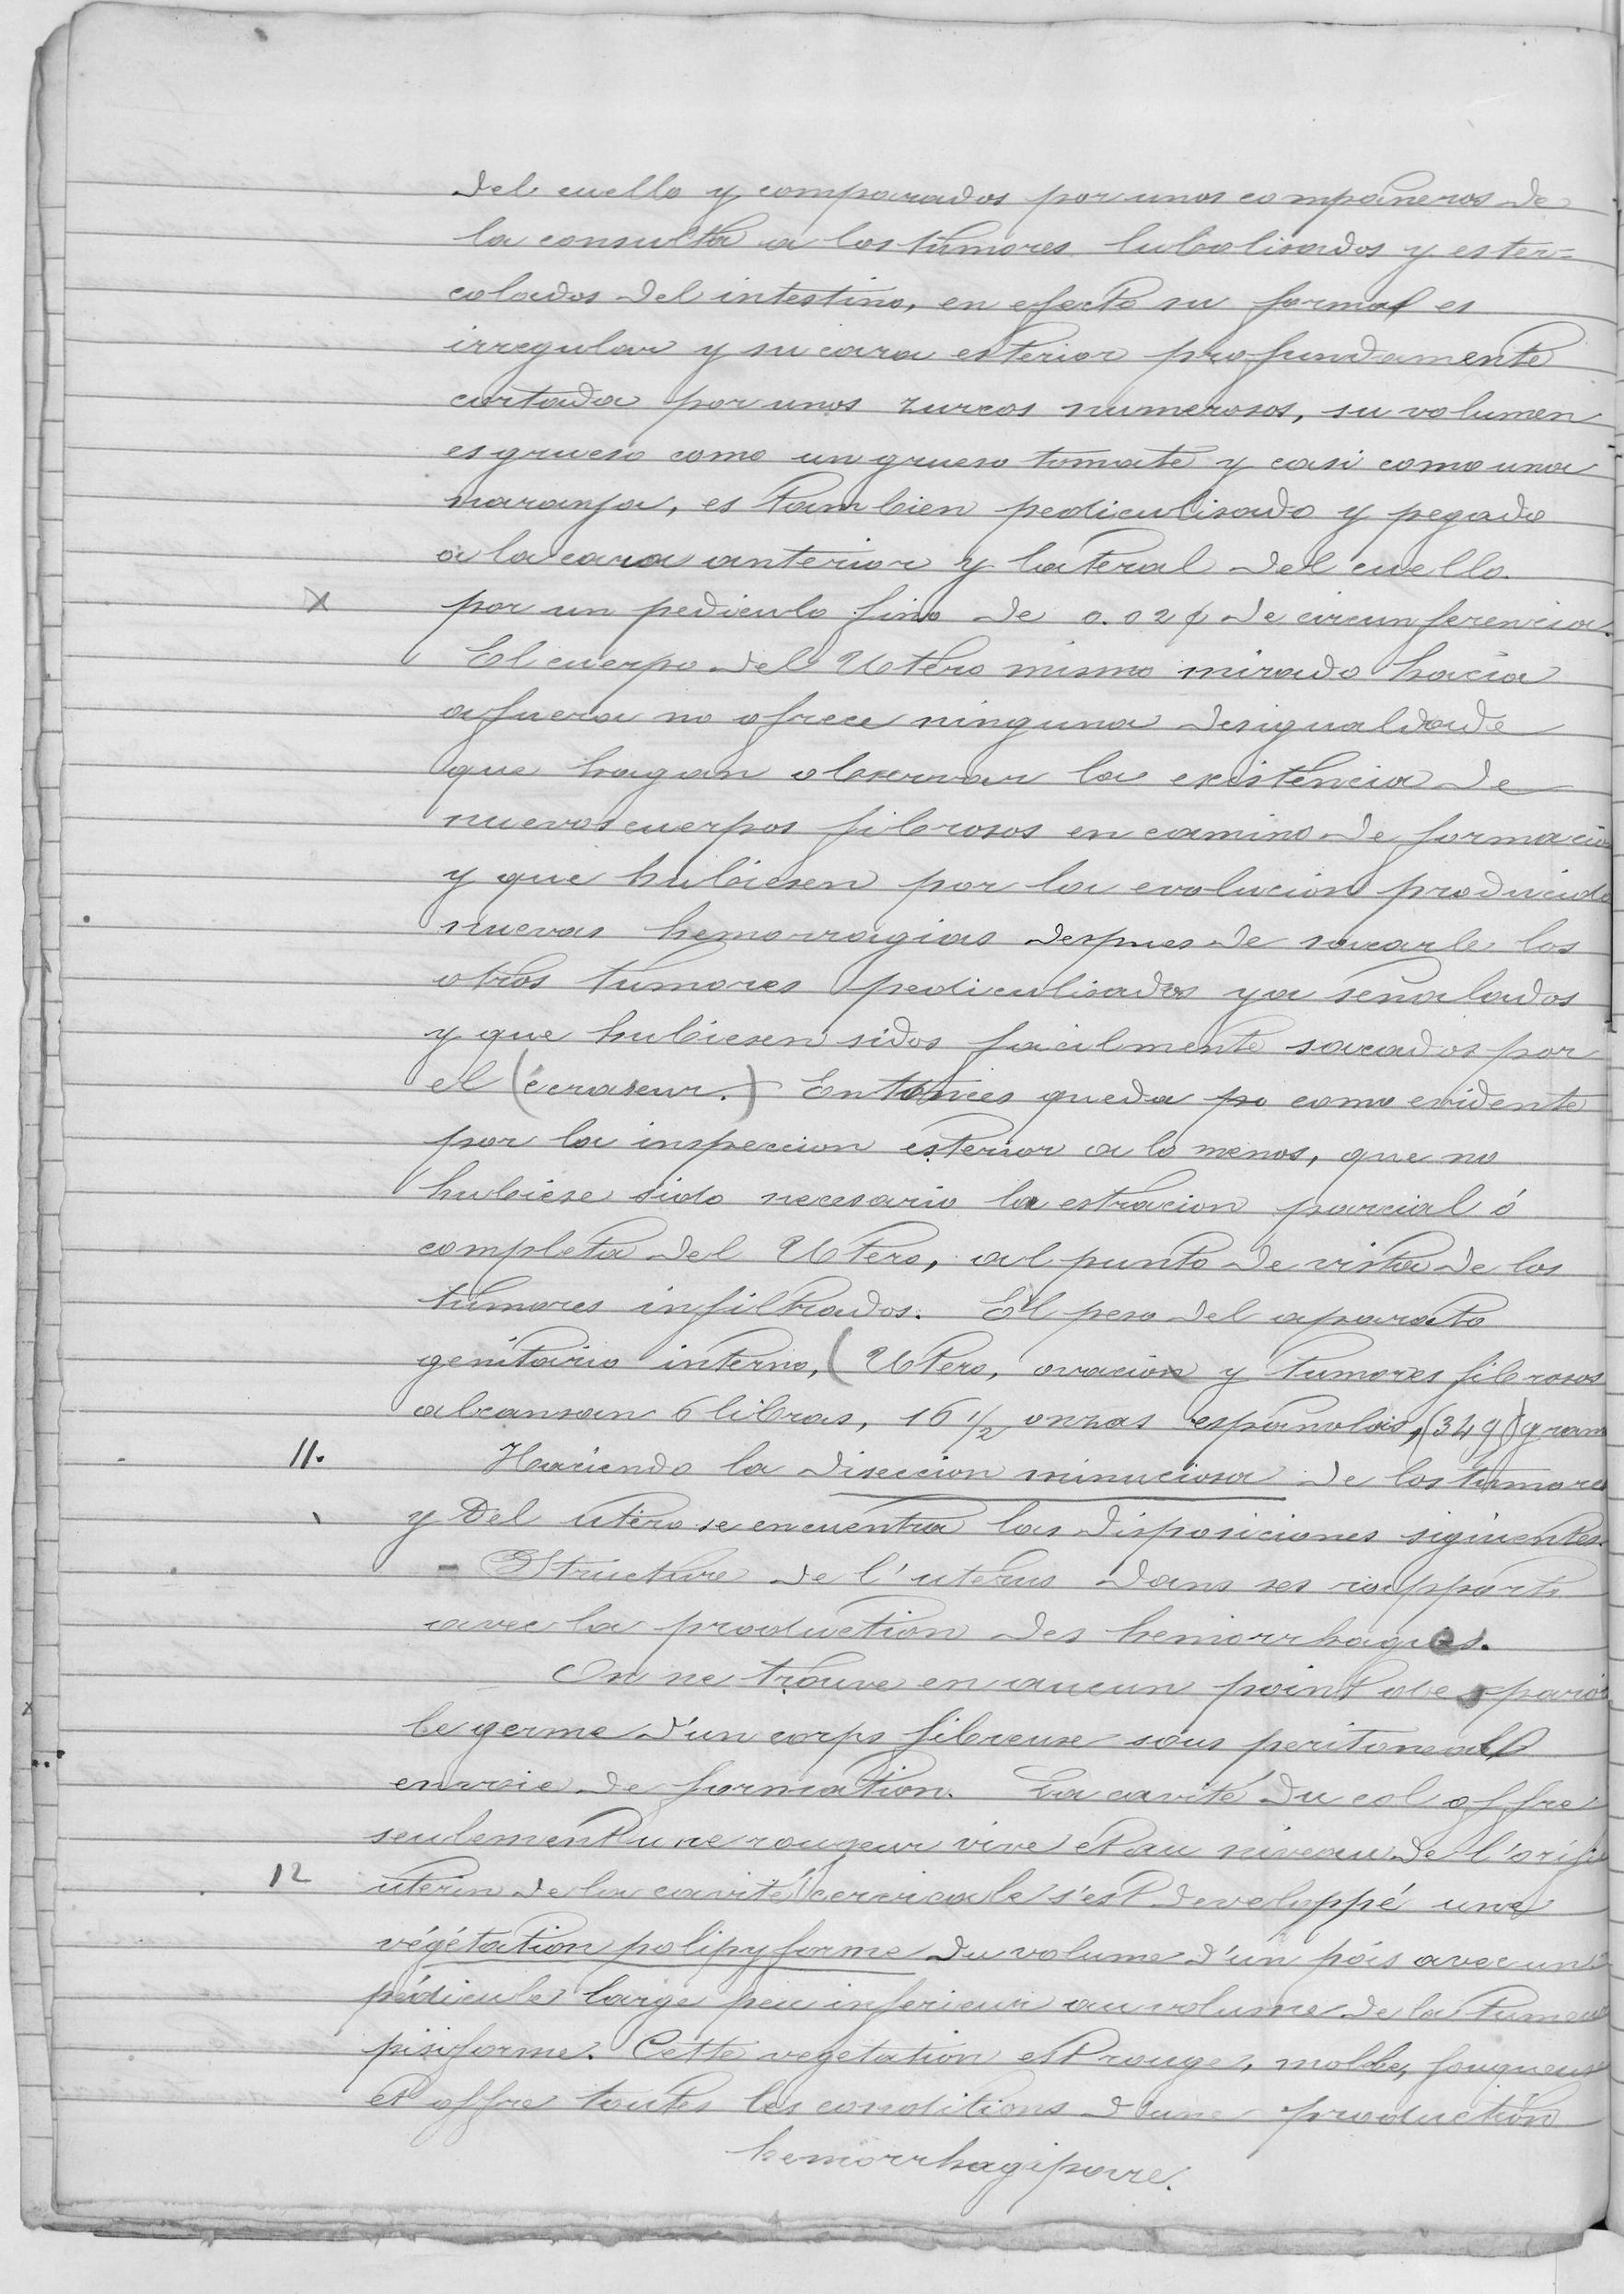 del cuello y comparados por unos compañeros de
la consulta a los tumores lubolisados y ester=
colados del intestino, en efecto su forma es
irregular y su cara esterior profundamente
cortada por unos zurcos numerosos, su volumen
es grueso como un grueso tomate y casi como una
naranja, es tambien pediculisado y pegado
a la cara anterior y lateral del cuello
x por un pediculo fino de 0.02 de circunferencia.
El cuerpo del Utero mismo mirado hacia
afuera no ofrece ninguna desigualdade
que hagan observar la existencia de
nuevos cuerpos fibrosos en camino de formacio
y que hubiesen por la evolucion producido
nuevas hemorragias despues de sacarle los
otros tumores pediculisados ya señalados
y que hubiesen sidos facilmente sacados por
el (écraseur.) Entonces queda po como evidente
por la inspeccion esterior a lo menos, que no
hubiese sido necesario la estracion parcial ó
completa del Utero, al punto de vista de los
tumores infiltrados. El peso del aparato
genitario interno, (Utero, ovacion y tumores fibrosos
alcansan 6 libras, 16 1/2 onzas españolas, (349) gram
11. Haciendo la diseccion minuciosa de los tumores
y Del utero se encuentra las disposiciones siguientes.
- Structure de l'uterus dans ses rapports
avec la production des hemorrhagies.
On ne trouve en aucun point de paroi
le germe d'un corps fibreuse sous peritoneal
en voie de formation. La cavité du col offre
seulement une rougeur vive et au niveau de l'orifi
12 uterin de la cavité cervicale s'est developpé une
végétation polipyforme du volume d'un pois avec un
pédicule large peu inferieur au volume de la tumeur
pisiforme. Cette vegetation est rouge, molle, fongueuse
et offre toutes les conditions d'une production
hemorrhagipare.